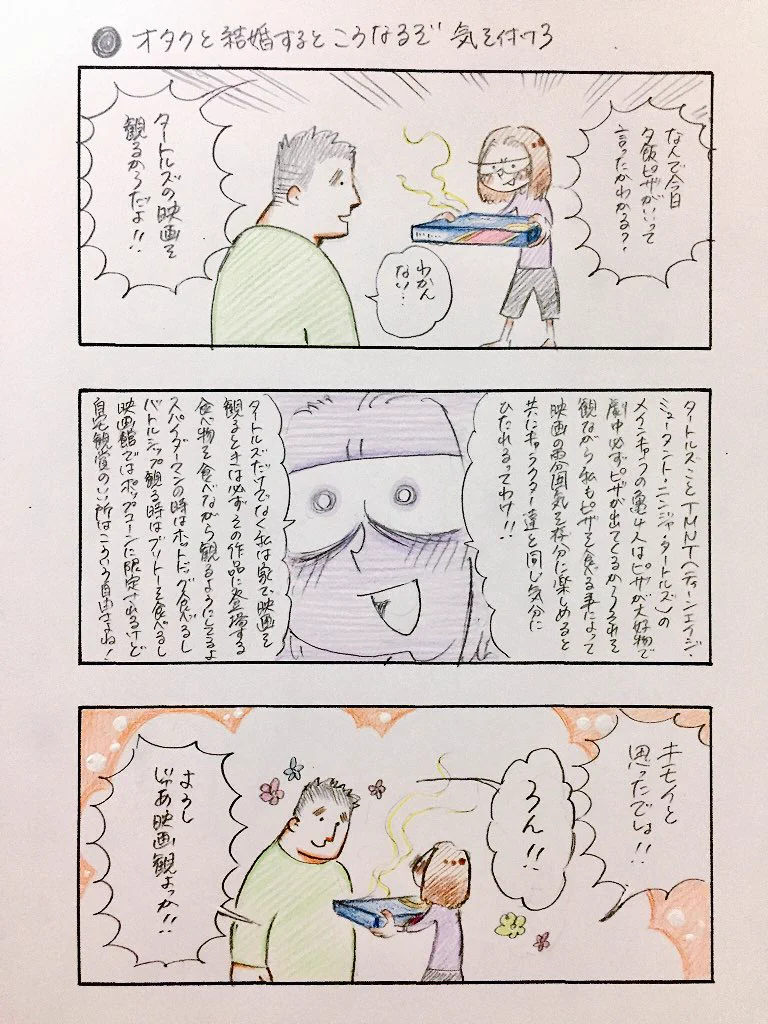 オタクと結婚するとこうなるぞ 気を付けろ
なんで今日
夕飯ピザがいいって
言ったかわかる?
わかん
ない…
タートルズの映画を
観るからだよ!!
タートルズことTMNT(ティーンエイジ・
ミュータント・ニンジャ・タートルズ)の
メインキャラの亀4人はピザが大好物で
劇中必ずピザが出てくるからそれを
観ながら私もピザを食べる事によって
映画の雰囲気を存分に楽しめると
共にキャラクター達と同じ気分に
ひたれるってわけ!!
タートルズだけでなく私は家で映画を
観るときは必ずその作品に登場する
食べ物を食べながら観るようにしてるよ
スパイダーマンの時はホットドッグ食べるし
バトルシップ観る時はブリトーを食べるし
映画館ではポップコーンに限定されるけど
自宅観賞のいい所はこういう自由さよね!
キモイと
思ったでしょ!!
うん!!
ようし
じゃあ映画観よっか!!